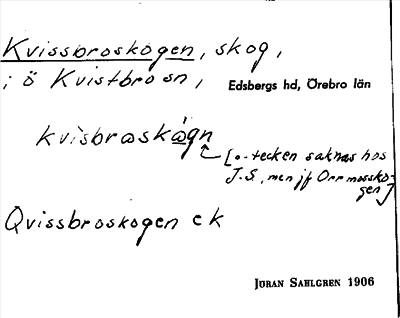 Kvissbroskogen, skog,
i ö Kvistbro sn,
Edsbergs hd, Örebro län
kvisbroskågn
[o-tecken saknas hos
J.S., men jf Orrmossko-
gen]
Qvissbroskogen ek
JÖRAN SAHLGREN 1906